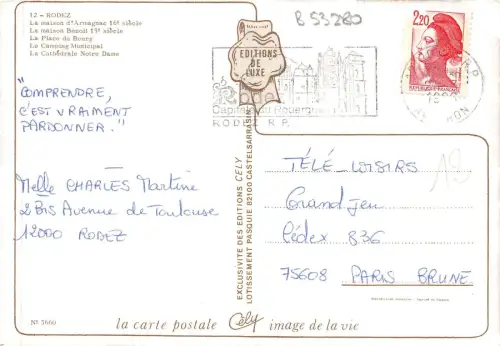 12 - RODEZ
La maison d'Armagnac 16e siècle
La maison Benoit 15e siècle
La Place du Bourg
Le Camping Municipal
La Cathédrale Notre Dame
B 53280
EDITIONS
DE
LUXE
2,20
REPUBLIQUE FRANÇAISE
Rodez
Capitale du Rouergue
RODEZ R.P.
"COMPRENDRE,
C'EST VRAIMENT
PARDONNER."
Melle CHARLES Martine
2 Bis Avenue de Toulouse
12000 RODEZ
EXCLUSIVITE DES EDITIONS CELY
LOTISSEMENT PASQUIE 82100 CASTELSARRASIN
TÉLÉ-LOISIRS
Grand Jeu
Cédex 836
75608 PARIS BRUNE
No 5660
la carte postale Cély image de la vie